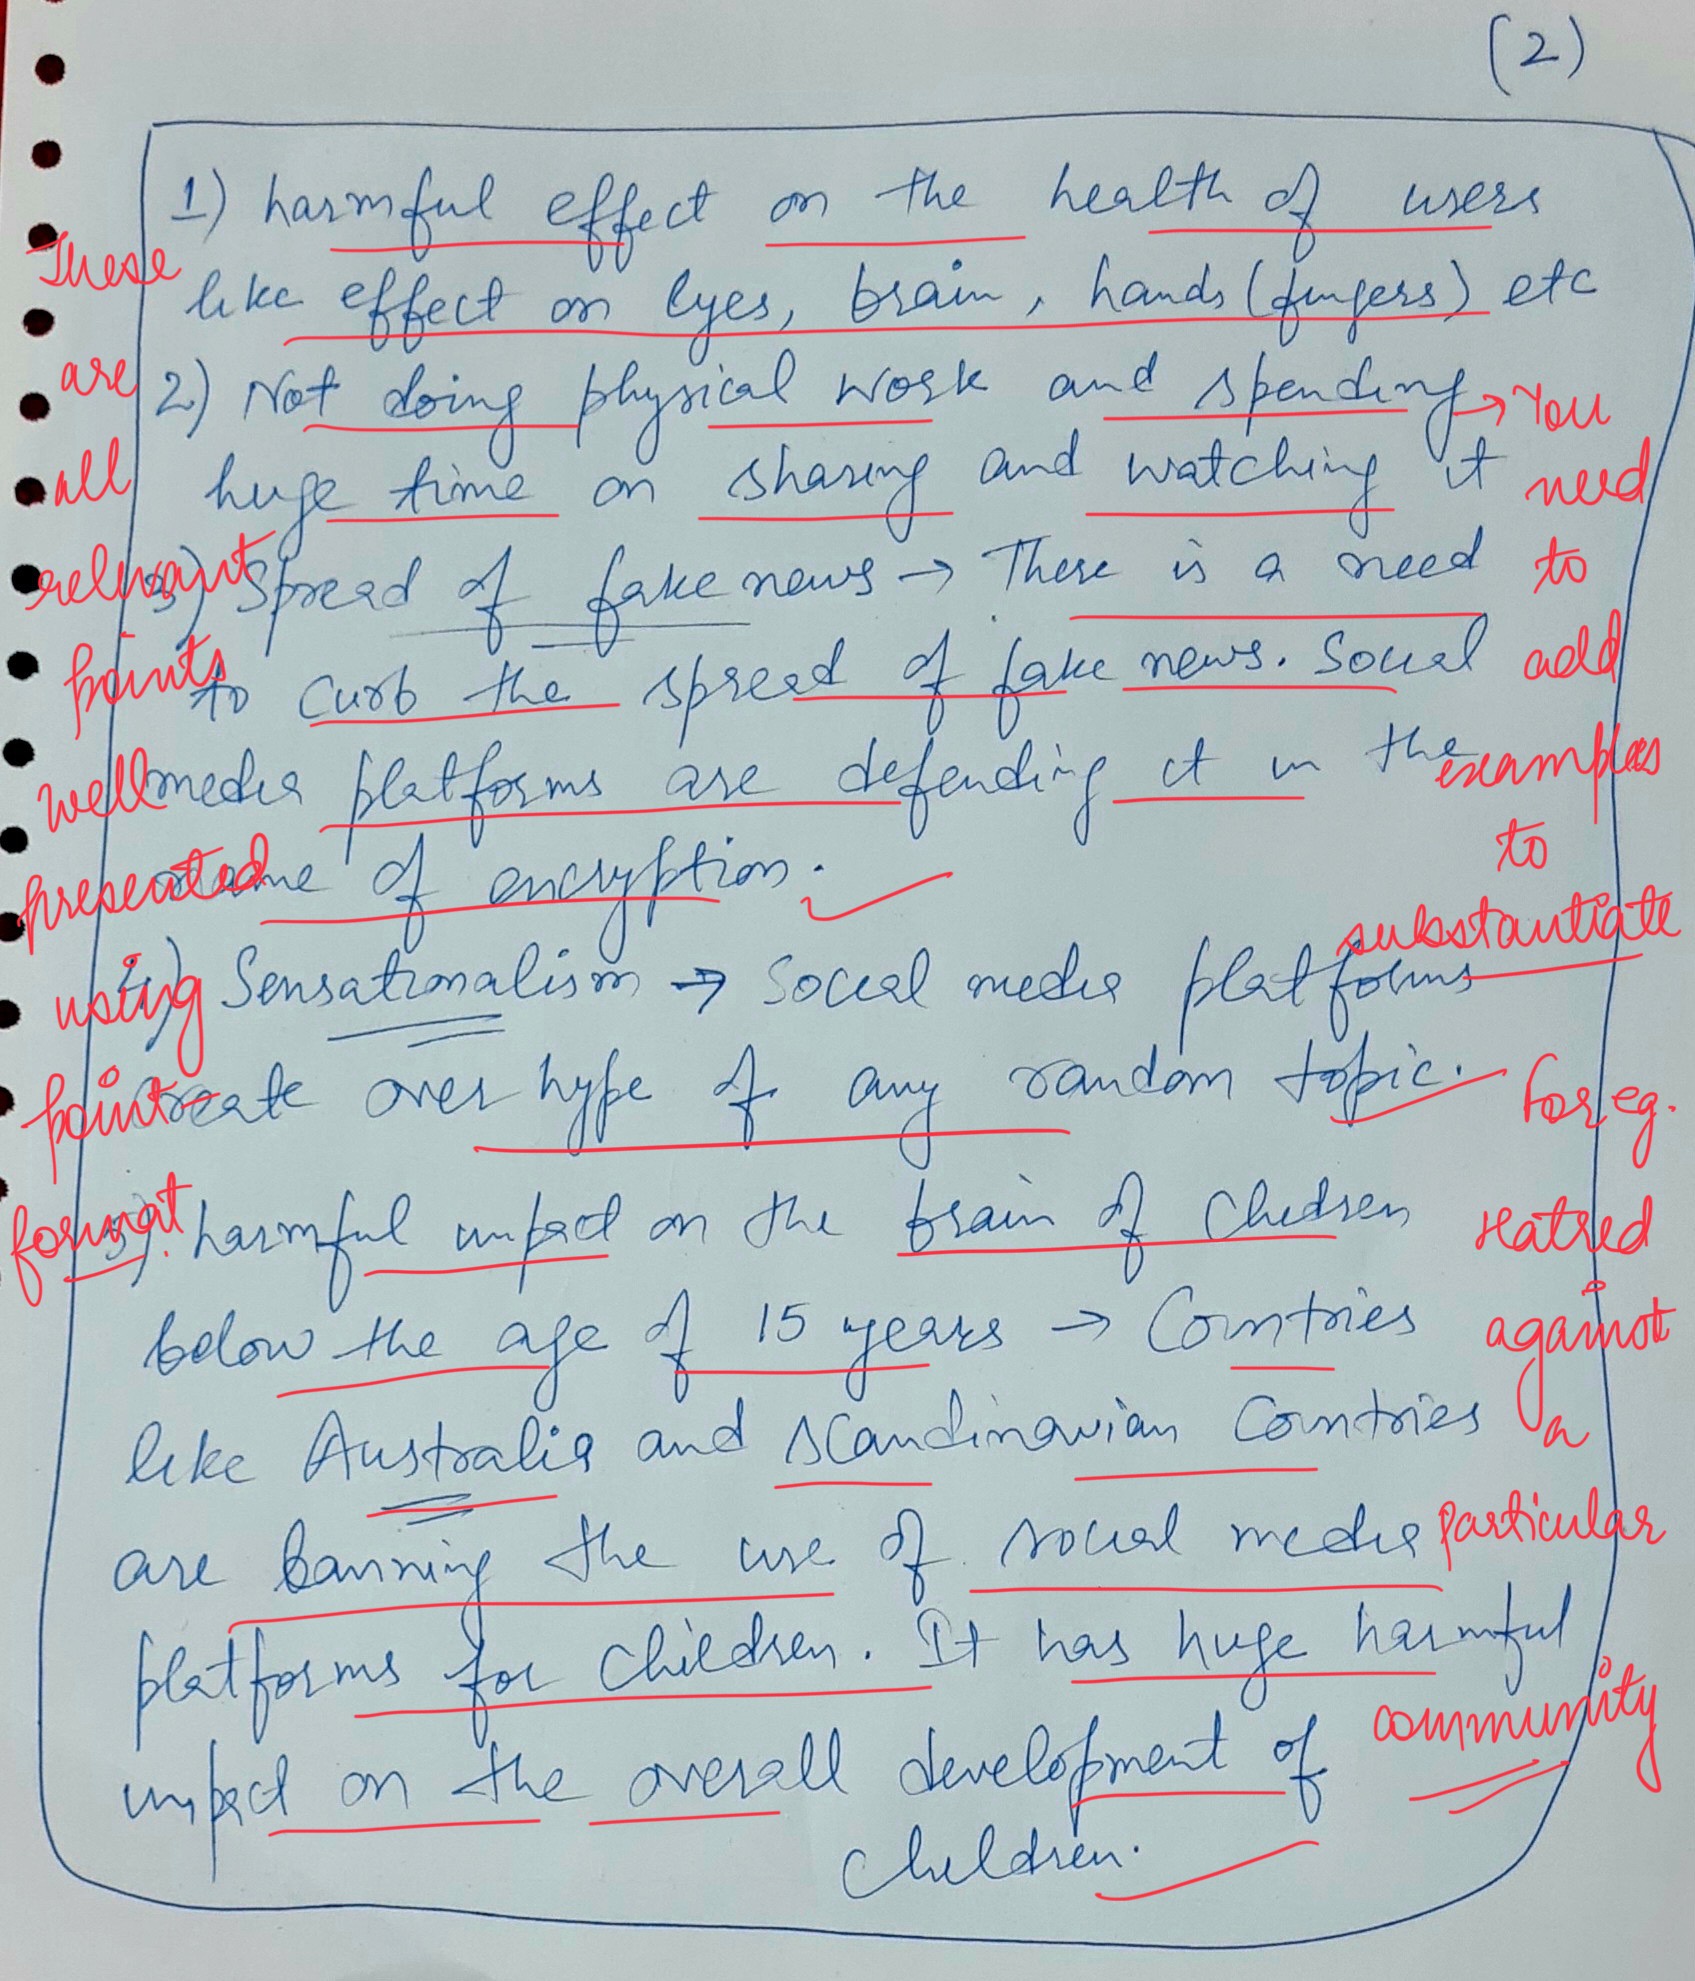 (2)
1) harmful effect on the health of users
like effect on eyes, brain, hands (fingers) etc
2) Not doing physical work and spending
huge time on sharing and watching it
3) Spread of fake news → There is a need
to curb the spread of fake news. Social
media platforms are defending it in the
name of encryption.
4) Sensationalism → Social media platforms
create over hype of any random topic.
5) harmful impact on the brain of children
below the age of 15 years → Countries
like Australia and Scandinavian Countries
are banning the use of social media
platforms for children. It has huge harmful
impact on the overall development of
children.
These
are
all
relevant
points
well
presented
using
point
format.
→ You
need
to
add
examples
to
substantiate
For eg.
Hatred
against
a
particular
community